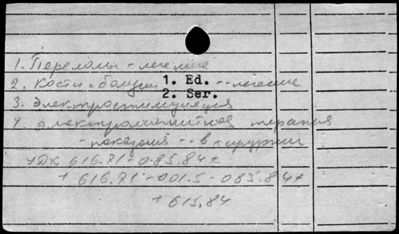 1. Переломы - лечение
2. Кости - болезни -- лечение
1. Ed.
2. Ser.
3. Электростимуляция
4. Электромагнитная терапия
- показания -- в хирургии
УДК 616.71-085.84 +
+ 616.71-001.5-085.84 +
+ 615.84